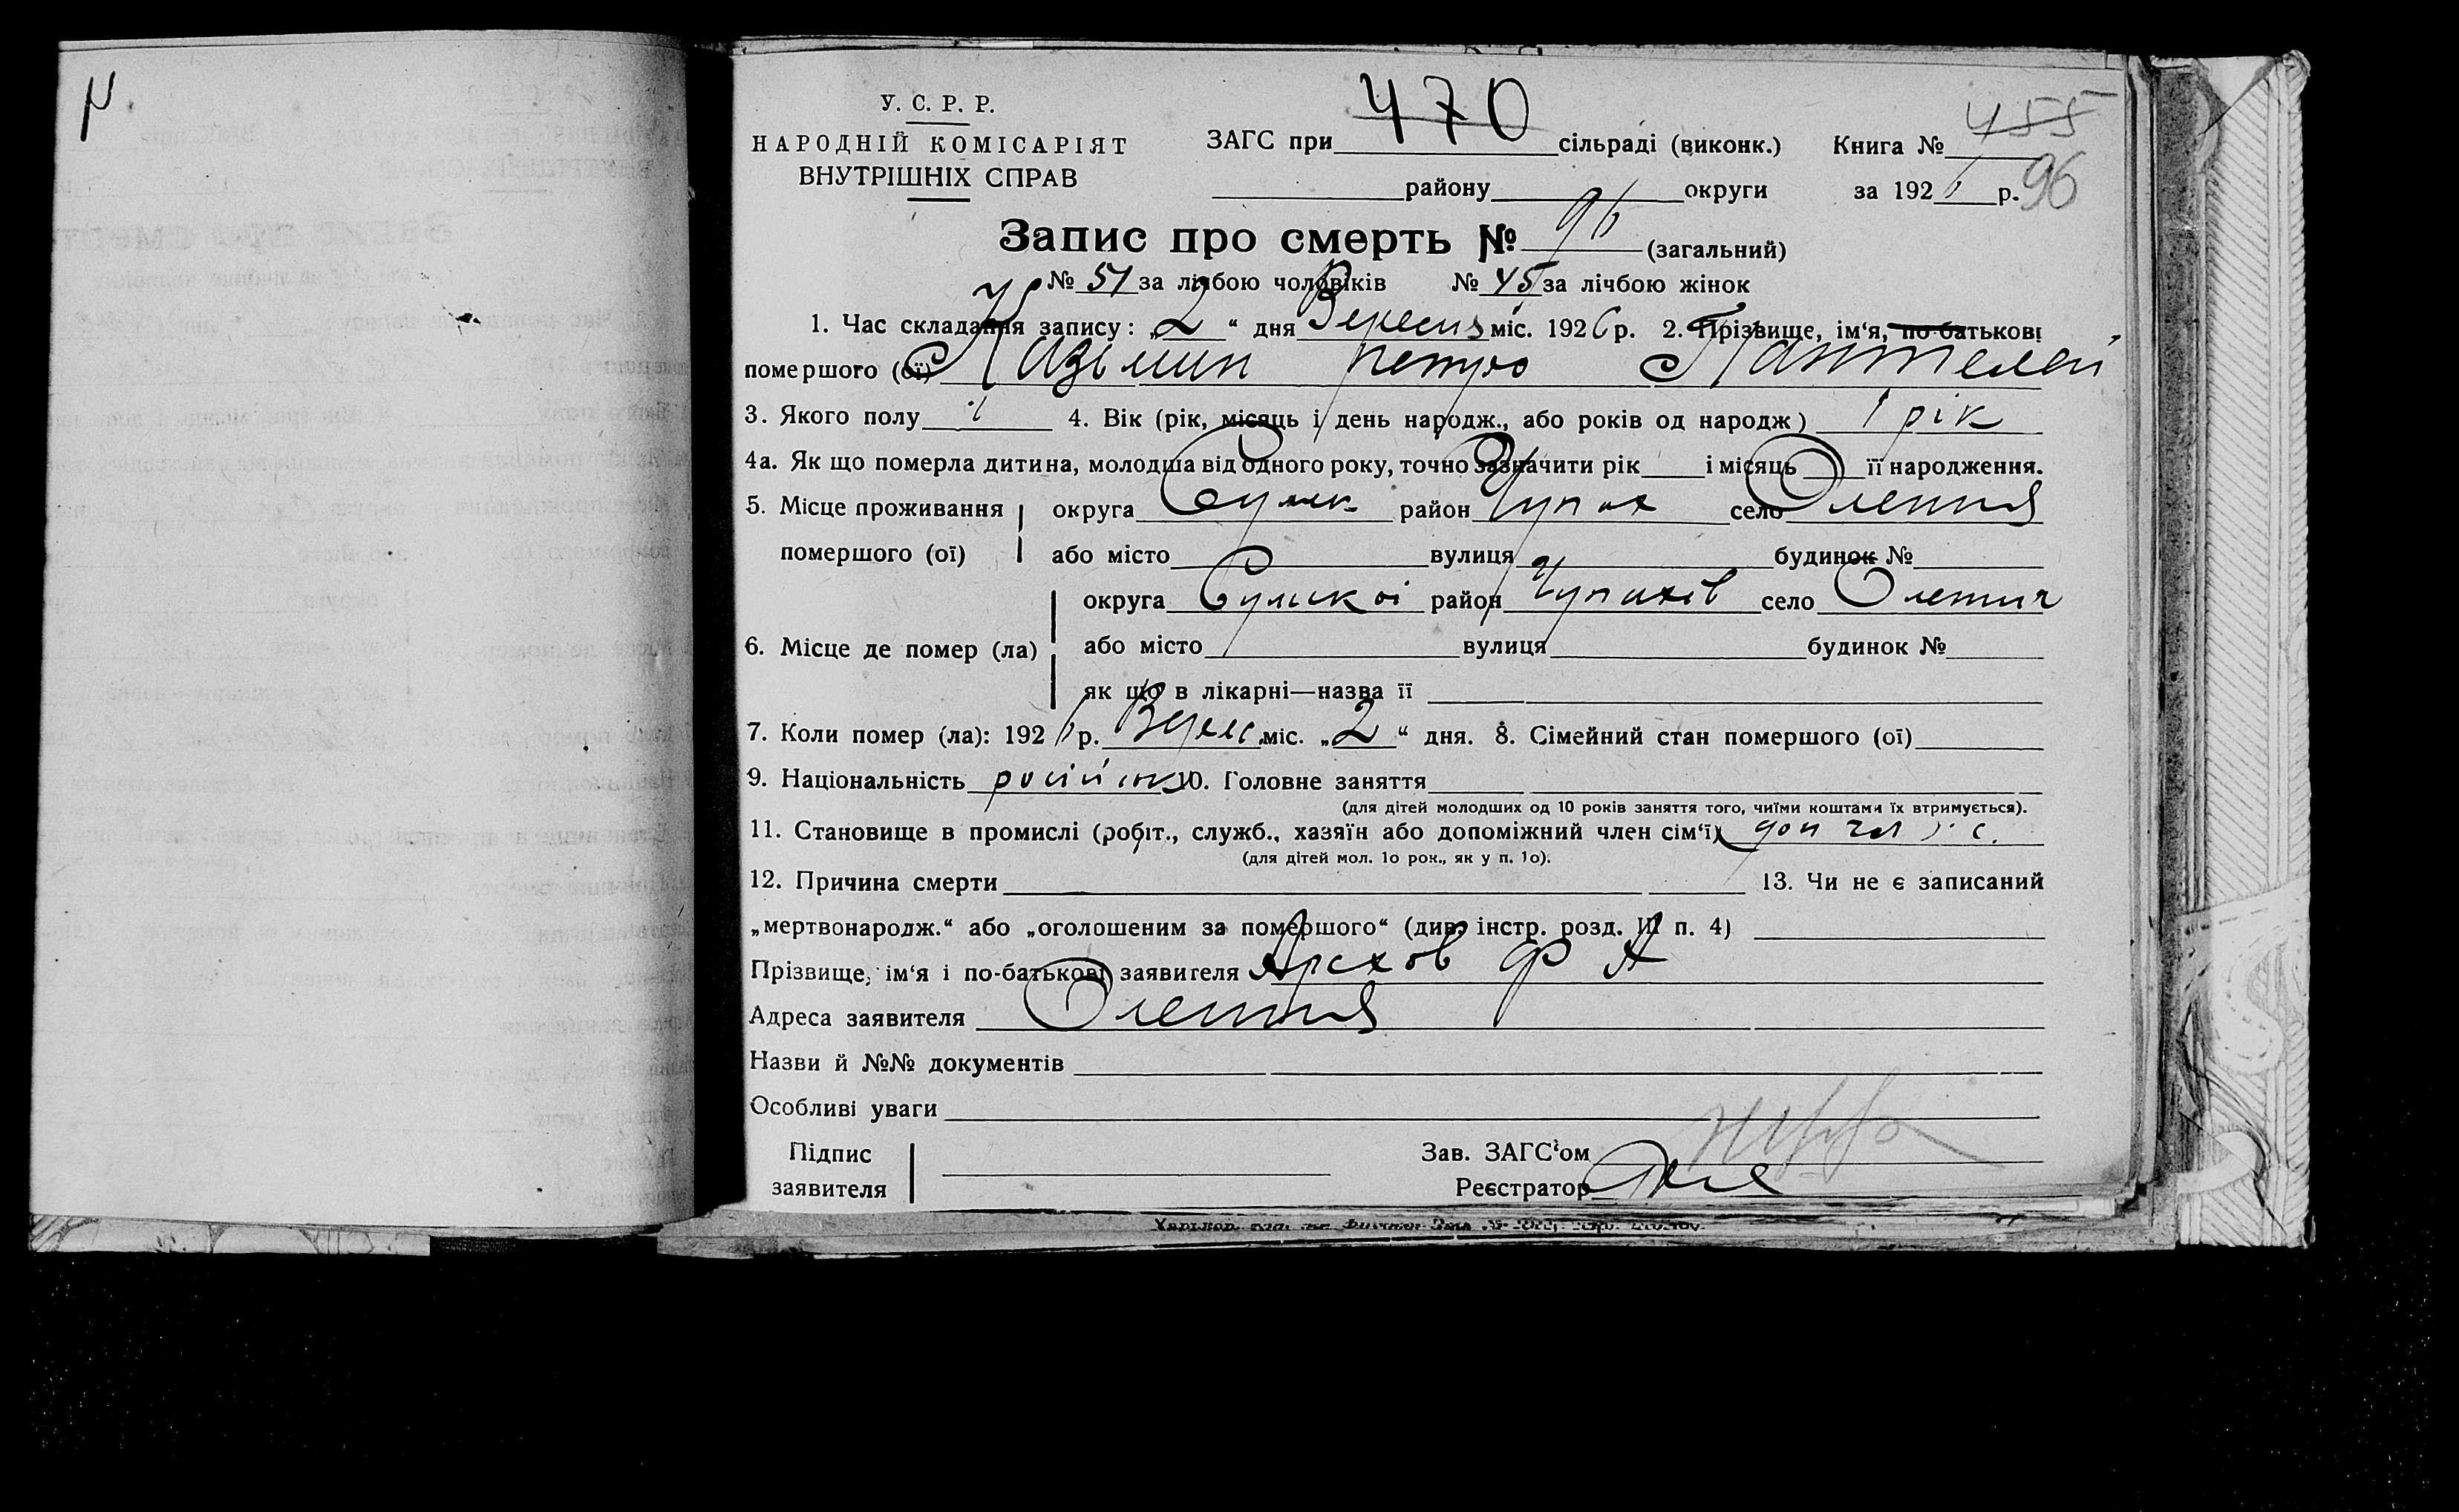 У. С. Р. Р.
НАРОДНІЙ КОМІСАРІЯТ
ВНУТРІШНІХ СПРАВ
ЗАГС при 470 сільраді (виконк.) Книга № 455
району округи за 1926 р. 96
Запис про смерть № 96 (загальний)
№ 51 за лічбою чоловіків № 45 за лічбою жінок
1. Час складання запису: „2“ дня Вересня міс. 1926 р. 2. Прізвище, ім‘я, по-батькові
помершого (ої) Казьмин Петро Пантелей
3. Якого полу ч 4. Вік (рік, місяць і день народж., або років од народж) 1 рік
4а. Як що померла дитина, молодша від одного року, точно зазначити рік і місяць її народження.
5. Місце проживання округа Сумск район Чупах село Олешня
помершого (ої) або місто вулиця будинок №
округа Сумскої район Чупахів село Олешня
6. Місце де помер (ла) або місто вулиця будинок №
як що в лікарні—назва її
7. Коли помер (ла): 1926 р. Верес міс. „2“ дня. 8. Сімейний стан помершого (ої)
9. Національність російск 10. Головне заняття
(для дітей молодших од 10 років заняття того, чиїми коштами їх втримується).
11. Становище в промислі (робіт., служб., хазяїн або допоміжний член сім‘ї) доп чл с.
(для дітей мол. 1о рок., як у п. 1о).
12. Причина смерти 13. Чи не є записаний
„мертвонародж.“ або „оголошеним за помершого“ (див. інстр. розд. III п. 4)
Прізвище, ім‘я і по-батькові заявителя Ф А
Адреса заявителя Олешня
Назви й №№ документів
Особливі уваги
Підпис Зав. ЗАГС‘ом
заявителя Реєстратор